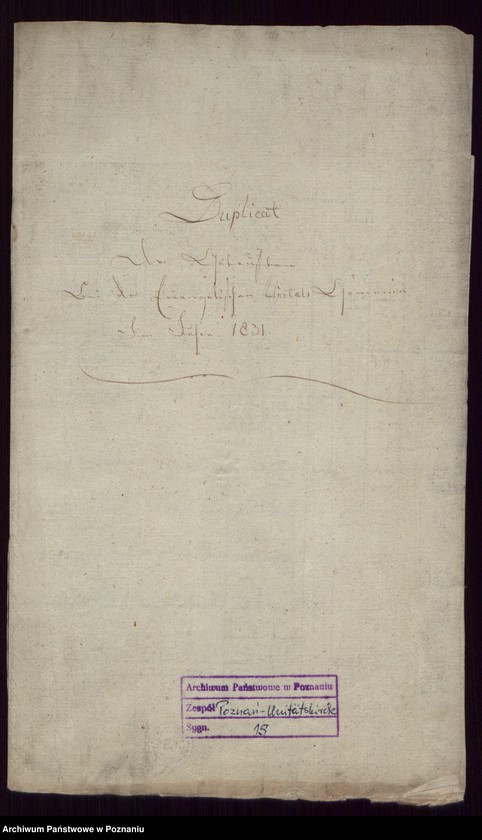 Duplicat
Der Getauften
bei der Evangelischen Unitäts Gemeinde
Im Jahre 1831
Archiwum Państwowe w Poznaniu
Zespół Poznań-Unitätskirche
Sygn. 18
Archiwum Państwowe w Poznaniu